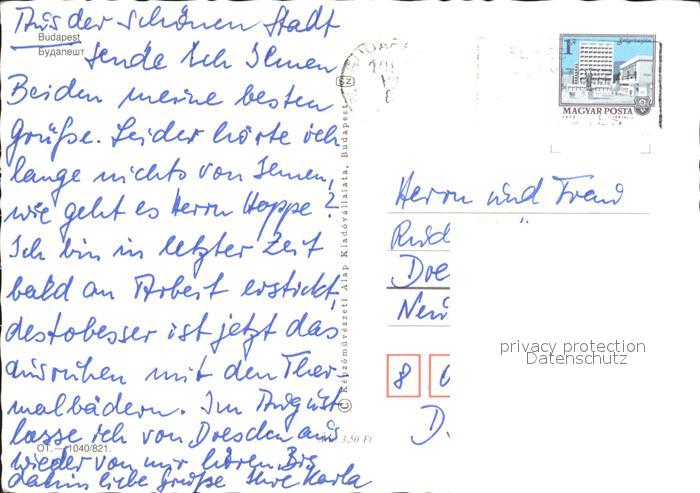 Aus der schönen Stadt
Budapest
Будапешт
sende ich Ihnen
Beiden meine besten
Grüße. Leider hörte ich
lange nichts von Ihnen,
wie geht es Herrn Hoppe?
Ich bin in letzter Zeit
bald an Arbeit erstickt,
destobesser ist jetzt das
Ausruhen mit den Ther-
malbädern. Im August
lasse ich von Dresden aus
wieder von mir hören. Bis
dahin liebe Grüße Ihre Karla
OT. — 1040/821.
3.50 Ft
© Képzőművészeti Alap Kiadóvállalata, Budapest
SZ
1Ft
MAGYAR POSTA
Herrn und Frau
Rud
Dre
Neu
8 0
D
privacy protection
Datenschutz